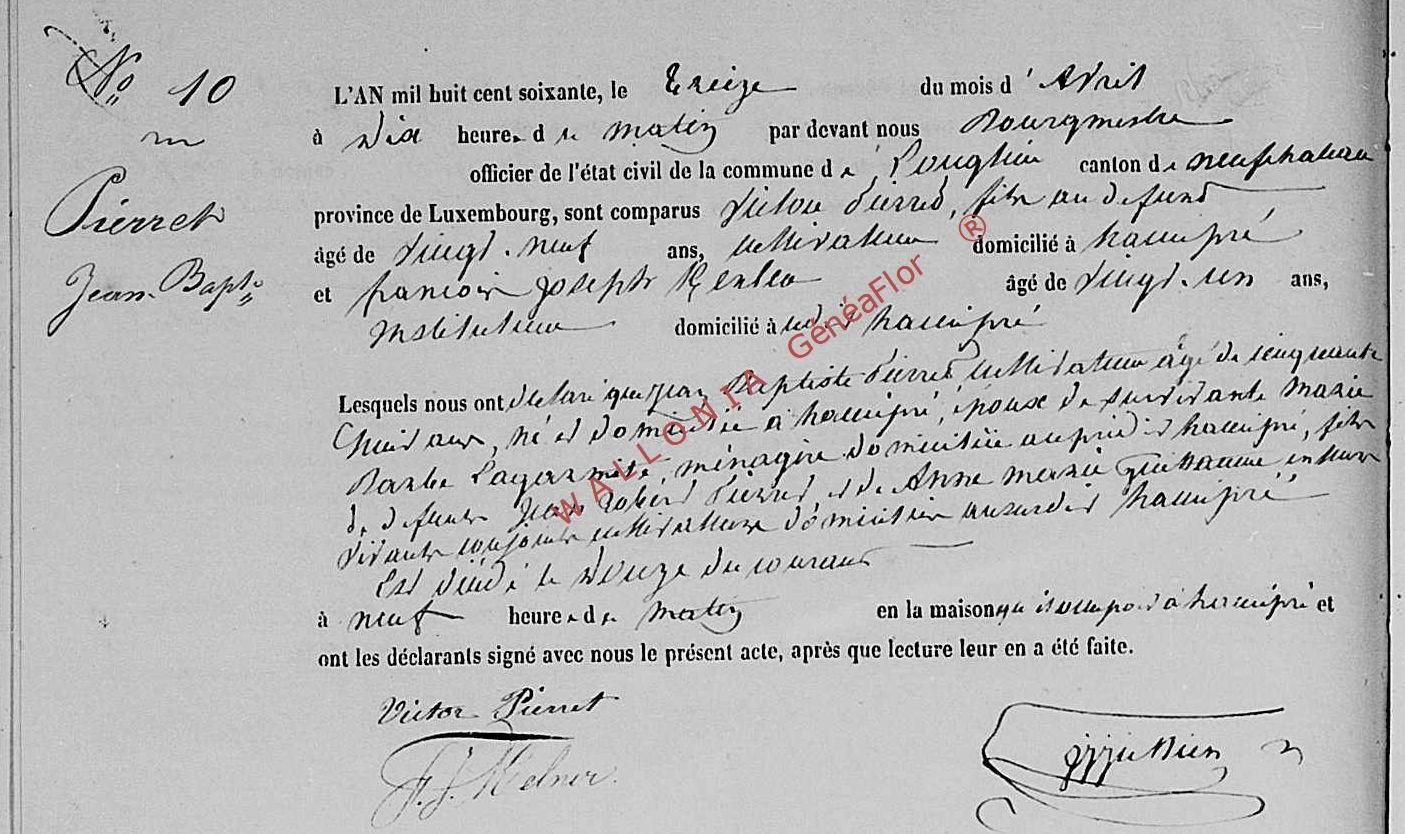 No 10
Pierret
Jean-Bapte
L'AN mil huit cent soixante, le treize du mois d'Avril
à dix heures du matin par devant nous Bourgmestre
officier de l'état civil de la commune de Longlier canton de neufchateau
province de Luxembourg, sont comparus Victor Pierret, fils au défunt
âgé de vingt-neuf ans, cultivateur domicilié à hamipré
et françois joseph âgé de vingt-un ans,
instituteur domicilié à hamipré
Lesquels nous ont déclaré que jean Baptiste Pierret cultivateur âgé de cinquante
ans, né et domicilié à hamipré, époux de survivante marie
Barbe ménagère domiciliée au prédit hamipré, fils
de défunts jean robert Pierret et de Anne marie Guillaume, en leurs
vivants conjoints cultivateurs domiciliés au susdit hamipré
Est décédé le douze du courant
à neuf heures du matin en la maison qu'il occupait à hamipré et
ont les déclarants signé avec nous le présent acte, après que lecture leur en a été faite.
Victor Pierret
F. J.
WALLONIA GénéaFlor ®